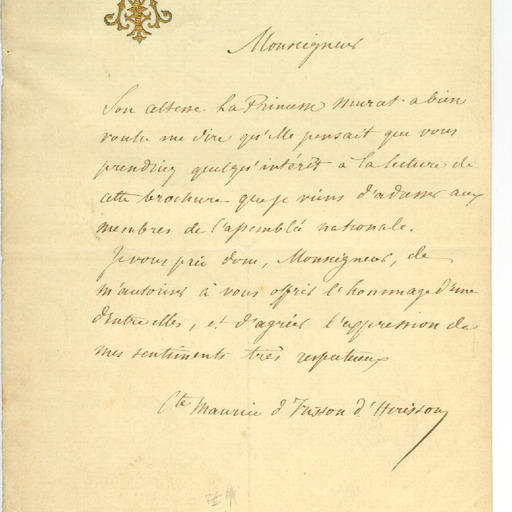 Monseigneur
Son altesse La Princesse Murat a bien
voulu me dire qu'elle pensait que vous
prendriez quelqu'intérêt à la lecture de
cette brochure que je viens d'adresser aux
membres de l'assemblée nationale.
Je vous prie donc, Monseigneur, de
m'autoriser à vous offrir l'hommage d'une
d'entre elles, et d'agréer l'expression de
mes sentiments très respectueux
Cte Maurice d'Irisson d'Hérisson